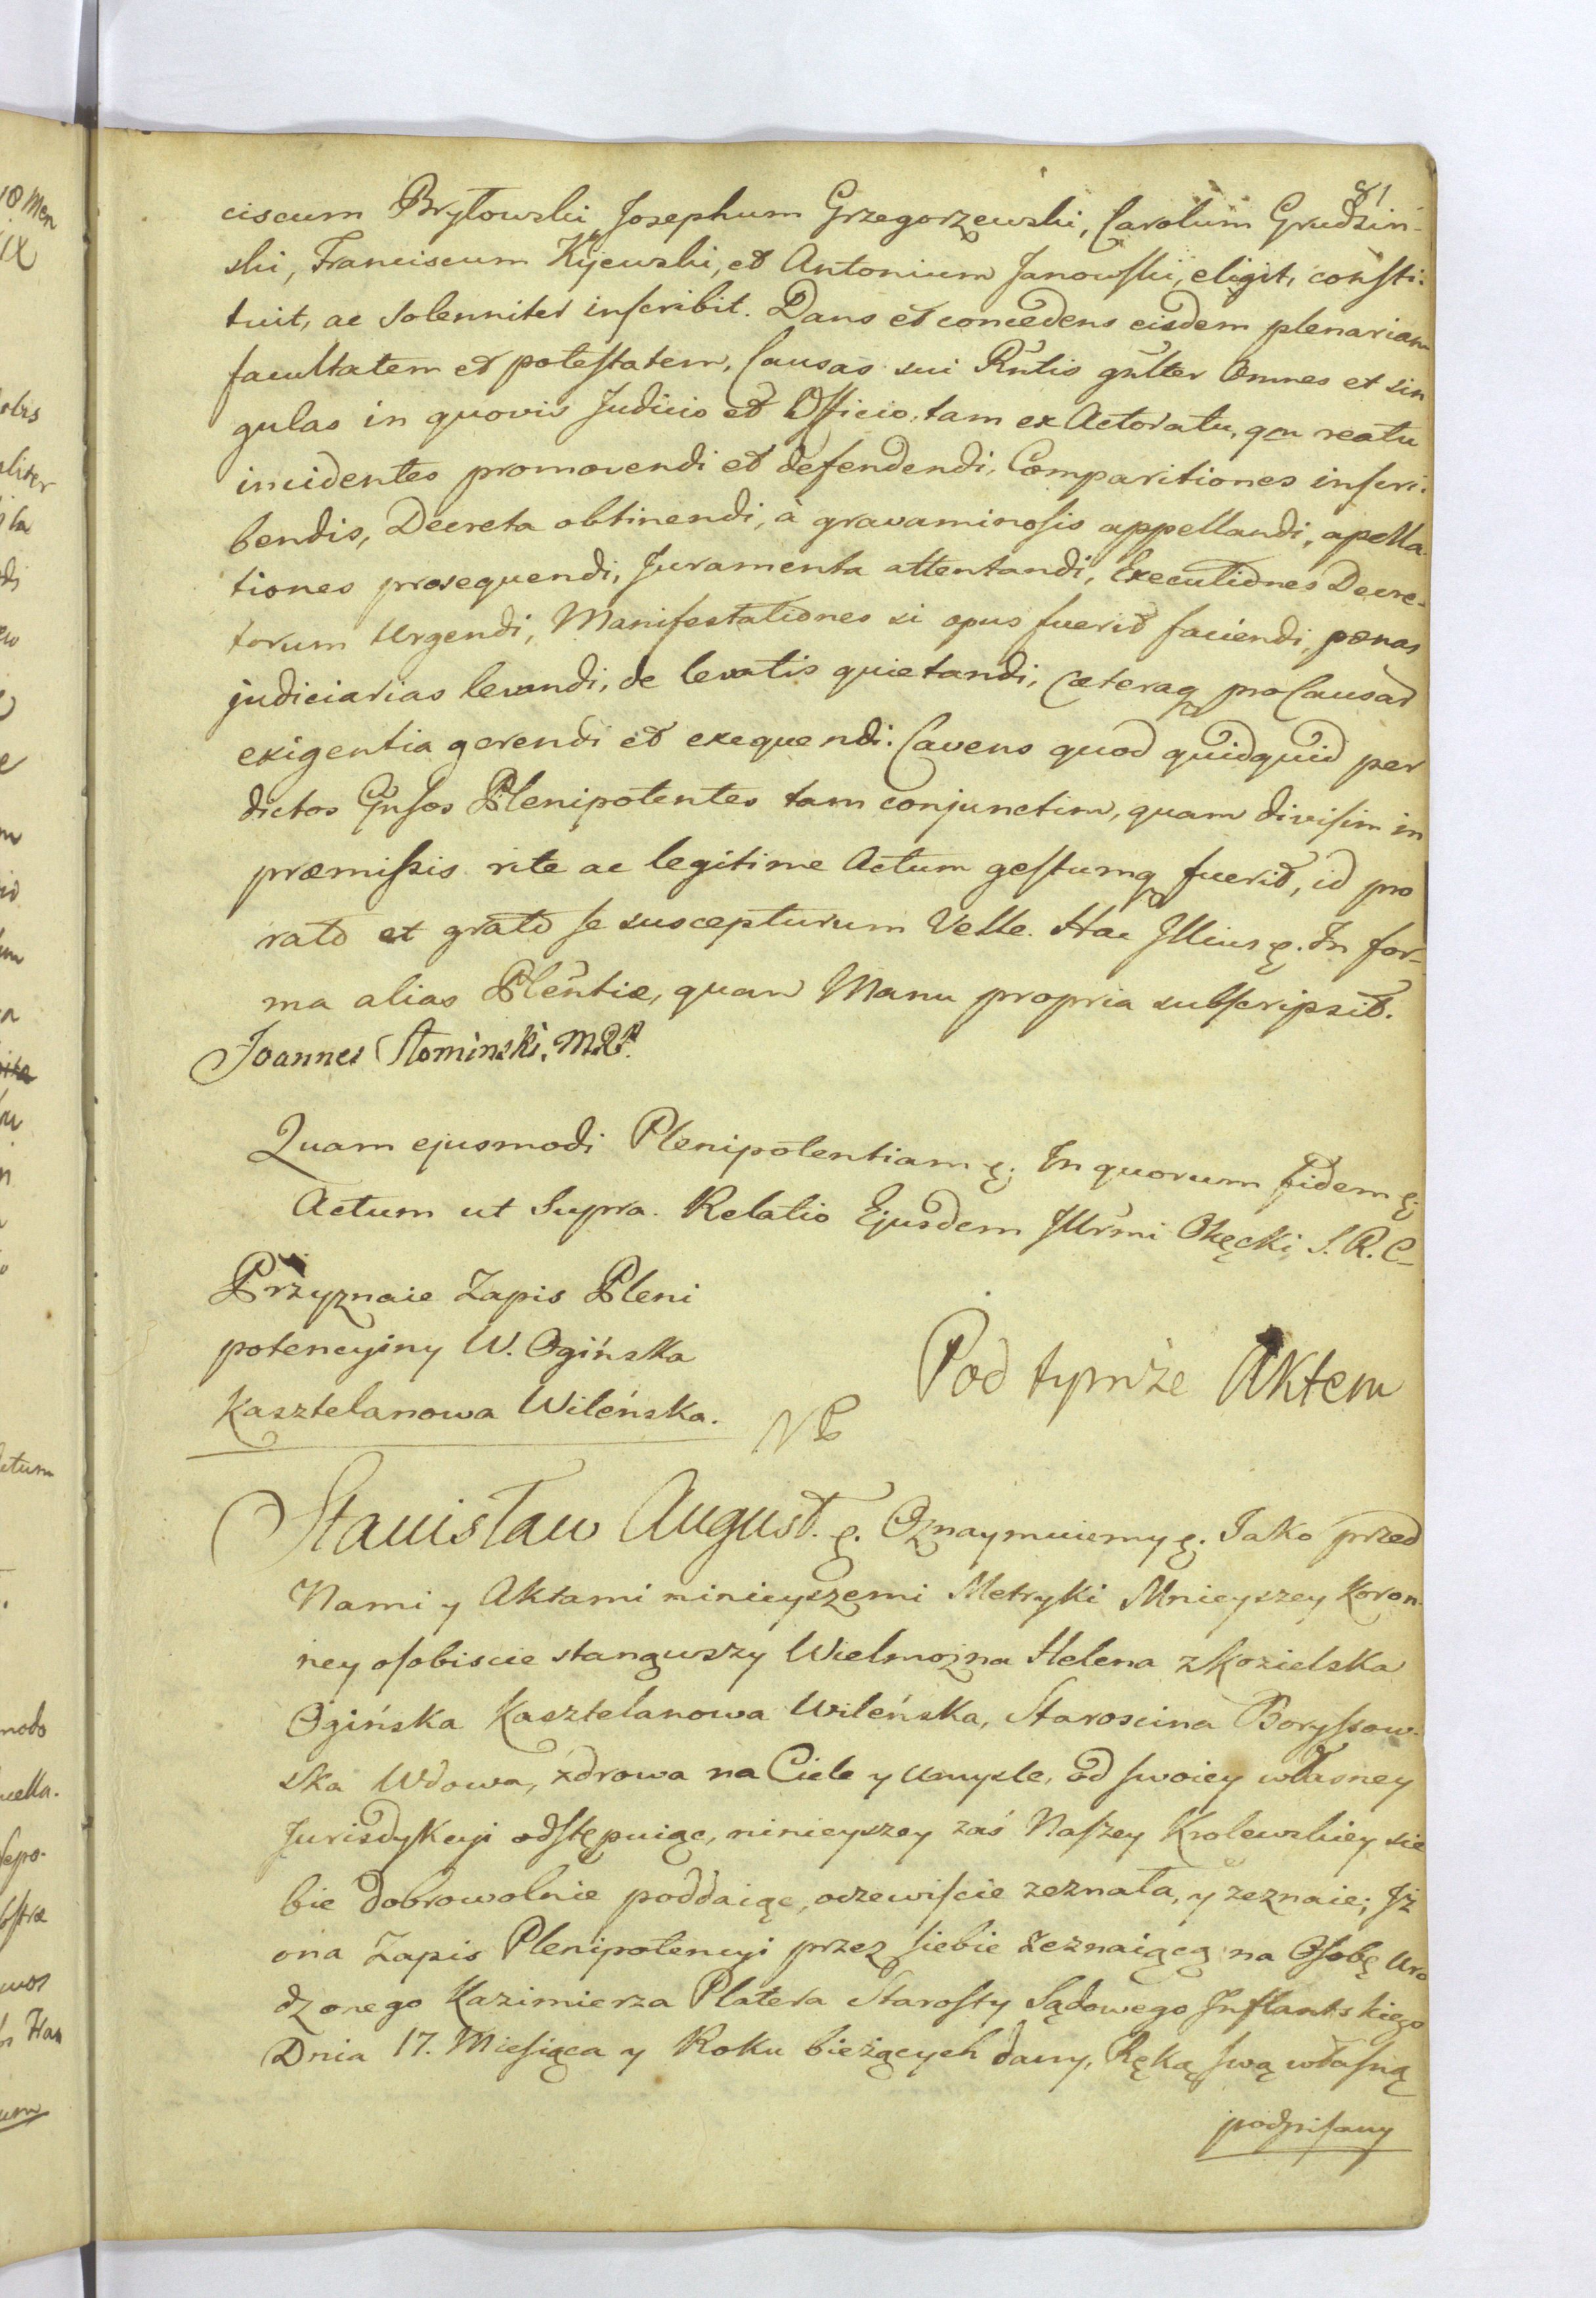 81
ciscum Brylowski, Josephum Grzegorzewski, Carolum Grudzin-
ski, Franciscum Kijewski, et Antonium Janowski, eligit, consti-
tuit, ac solenniter inscribit. Dans et concedens eisdem plenariam
facultatem et potestatem, Causas sui Rńtis gnlter Omnes et sin
gulas in quovis Judicio et Officio, tam ex Actoratu, qm reatu
incidentes promovendi et defendendi, Comparitiones inscri-
bendis, Decreta obtinendi, à gravaminosis appellandi, apella-
tiones prosequendi, Juramenta attentandi, Executiones Decre-
torum Urgendi, Manifestationes si opus fuerit faciendi, pœnas
judiciarias levandi, de levatis quietandi, Cæteraq pro Causar
exigentia gerendi et exequendi. Cavens quod quidquid per
dictos Gnsos Plenipotentes tam conjunctim, quam divisim in
præmissis rite ac legitime Actum gestumq fuerit, id pro
rato et grato se suscepturum Velle. Hac Illius ę. In for-
ma alias Pleńtiæ, quam Manu propria subscripsit.
Joannes Słominski, mpp.
Quam ejusmodi Plenipotentiam ę. In quorum fidem ę.
Actum ut Supra. Relatio Ejusdem Illrmi Okęcki S. R. C-
Przyznaie Zapis Pleni
potencyiny W. Ogińska
Kasztelanowa Wileńska.
Pod tymże Aktem
NB
Stanisław August. ę. Oznaymuiemy ę. Jako przed
Nami y Aktami ninieyszemi Metryki Mnieyszey Koron-
ney osobiscie stanąwszy Wielmożna Helena z Kozielska
Ogińska Kasztelanowa Wileńska, Staroscina Boryssow-
ska Wdowa, zdrowa na Ciele y Umysle, od swoiey własney
Jurisdykcyi odstępuiąc, ninieyszey zaś Naszey Krolewskiey sie
bie dobrowolnie poddaiąc, oczewiscie zeznała, y zeznaie; Jż
ona Zapis Plenipotencyi przez siebie zeznaiącą na Osobę Uro
dzonego Kazimierza Platera Starosty Sądowego Inflantskiego
Dnia 17. Miesiąca y Roku bieżących dany, Ręką swą własną
podpisany